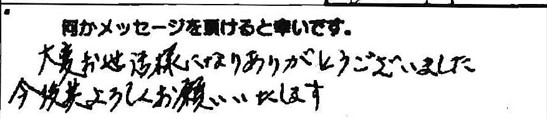 何かメッセージを頂けると幸いです。
大変お世話様になりありがとうございました
今後共よろしくお願いいたします